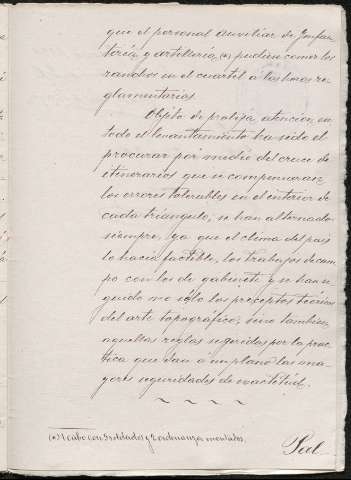 que el personal auxiliar de Infan
tería y artillería, (*) pudiera comer los
ranchos en el cuartel á las horas re
glamentarias.
Objeto de prolija atencion, en
todo el levantamiento ha sido el
procurar por medio del cruce de
itinerarios que se compensaran
los errores tolerables en el interior de
cada triángulo; se han alternado
siempre, ya que el clima del país
lo hacia factible, los trabajos de cam
po con los de gabinete y se han se
guido no sólo los preceptos teóricos
del arte topográfico, sino tambien
aquellas reglas sugeridas por la prac
tica que dan a un plano las ma
yores seguridades de exactitud.
(*) 1 cabo con soldados y 2 ordenanzas montados.
Sal